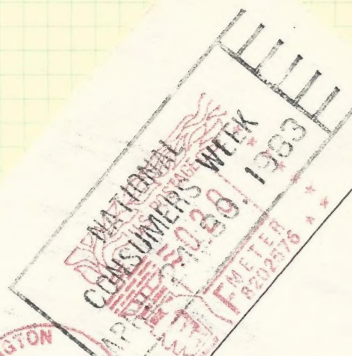 NATIONAL
CONSUMERS WEEK
APRIL 1983
POSTAGE
METER
8202576
GTON